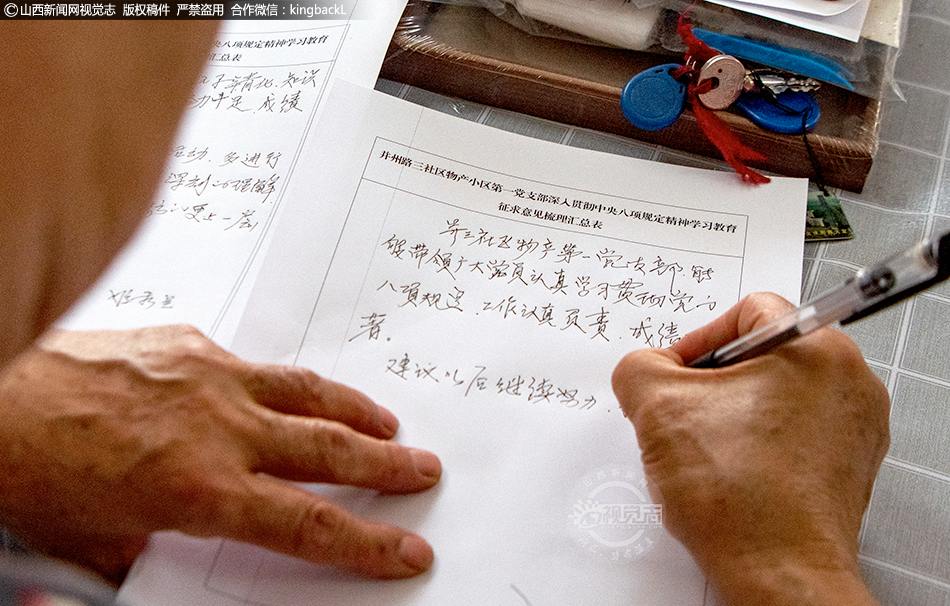 ©山西新闻网视觉志 版权稿件 严禁盗用 合作微信：kingbackL
央八项规定精神学习教育
汇总表
知识
成绩
多进行
理解
更上一层
井州路三社区物产小区第一党支部深入贯彻中央八项规定精神学习教育
征求意见梳理汇总表
并三社区物产第一党支部，能
够带领广大党员认真学习贯彻党的
八项规定，工作认真负责，成绩
著。
建议以后继续努力，
视觉志